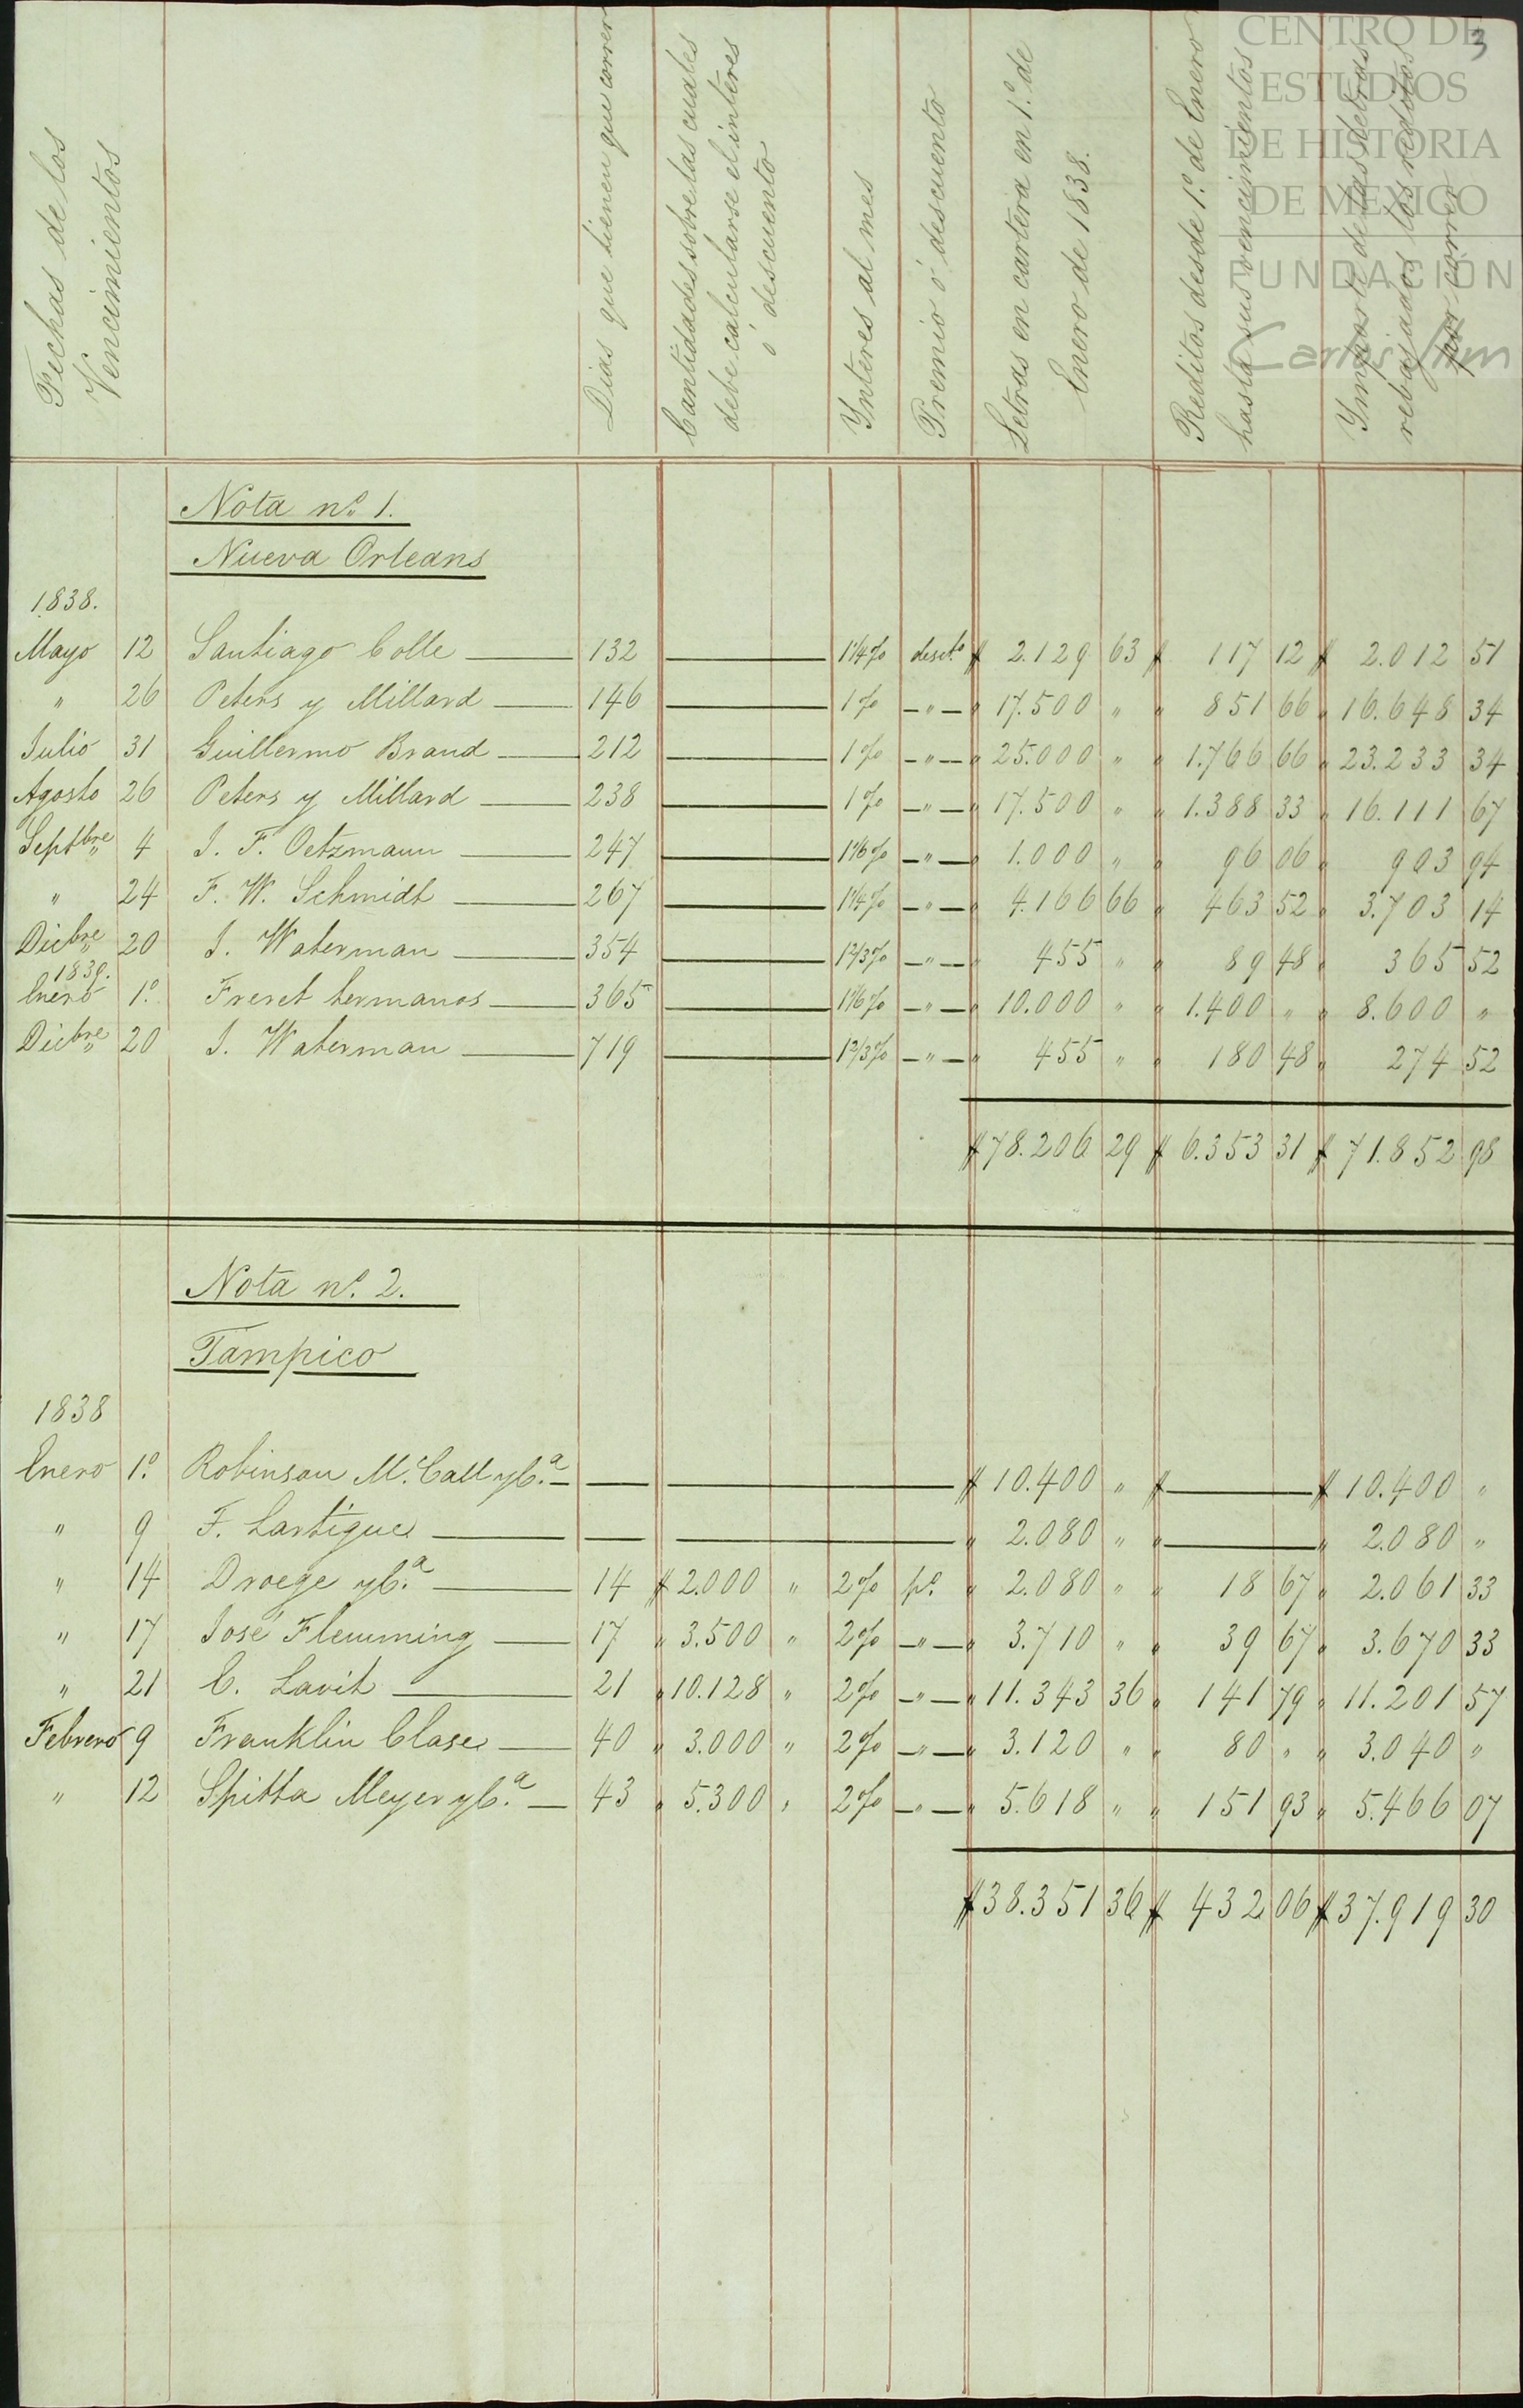 3
CENTRO DE
ESTUDIOS
DE HISTORIA
DE MEXICO
FUNDACIÓN
Carlos Slim
Fechas de los
Vencimientos
Dias que tienen que correr
Cantidades sobre las cuales
debe calcularse el interes
ó descuento
Ynteres al mes
Premio ó descuento
Letras en cartera en 1.º de
Enero de 1838.
Reditos desde 1.º de Enero
hasta sus vencimientos
Ymporte de las letras
rebajados los reditos
por correr
Nota n.º 1.
Nueva Orleans
1838.
Mayo 12 Santiago Colle 132 1 1/4 % desc.to $ 2.129 63 $ 117 12 $ 2.012 51
" 26 Peters y Millard 146 1 % " " 17.500 " " 851 66 " 16.648 34
Julio 31 Guillermo Brand 212 1 % " " 25.000 " " 1.766 66 " 23.233 34
Agosto 26 Peters y Millard 238 1 % " " 17.500 " " 1.388 33 " 16.111 67
Septbre 4 J. F. Oetzmann 247 1 1/6 % " " 1.000 " " 96 06 " 903 94
" 24 F. W. Schmidt 267 1 1/4 % " " 4.166 66 " 463 52 " 3.703 14
Dicbre 20 J. Waterman 354 1 2/3 % " " 455 " " 89 48 " 365 52
1839.
Enero 1.º Freret hermanos 365 1 1/6 % " " 10.000 " " 1.400 " " 8.600 "
Dicbre 20 J. Waterman 719 1 2/3 % " " 455 " " 180 48 " 274 52
$ 78.206 29 $ 6.353 31 $ 71.852 98
Nota n.º 2.
Tampico
1838
Enero 1.º Robinson Mc.Call y C.ª $ 10.400 " $ $ 10.400 "
" 9 F. Lartigue " 2.080 " " " 2.080 "
" 14 Droege y C.ª 14 $ 2.000 " 2 % p.º " 2.080 " " 18 67 " 2.061 33
" 17 José Flemming 17 " 3.500 " 2 % " " 3.710 " " 39 67 " 3.670 33
" 21 C. Lavit 21 " 10.128 " 2 % " " 11.343 36 " 141 79 " 11.201 57
Febrero 9 Franklin Clase 40 " 3.000 " 2 % " " 3.120 " " 80 " " 3.040 "
" 12 Spitta Meyer y C.ª 43 " 5.300 " 2 % " " 5.618 " " 151 93 " 5.466 07
$ 38.351 36 $ 432 06 $ 37.919 30